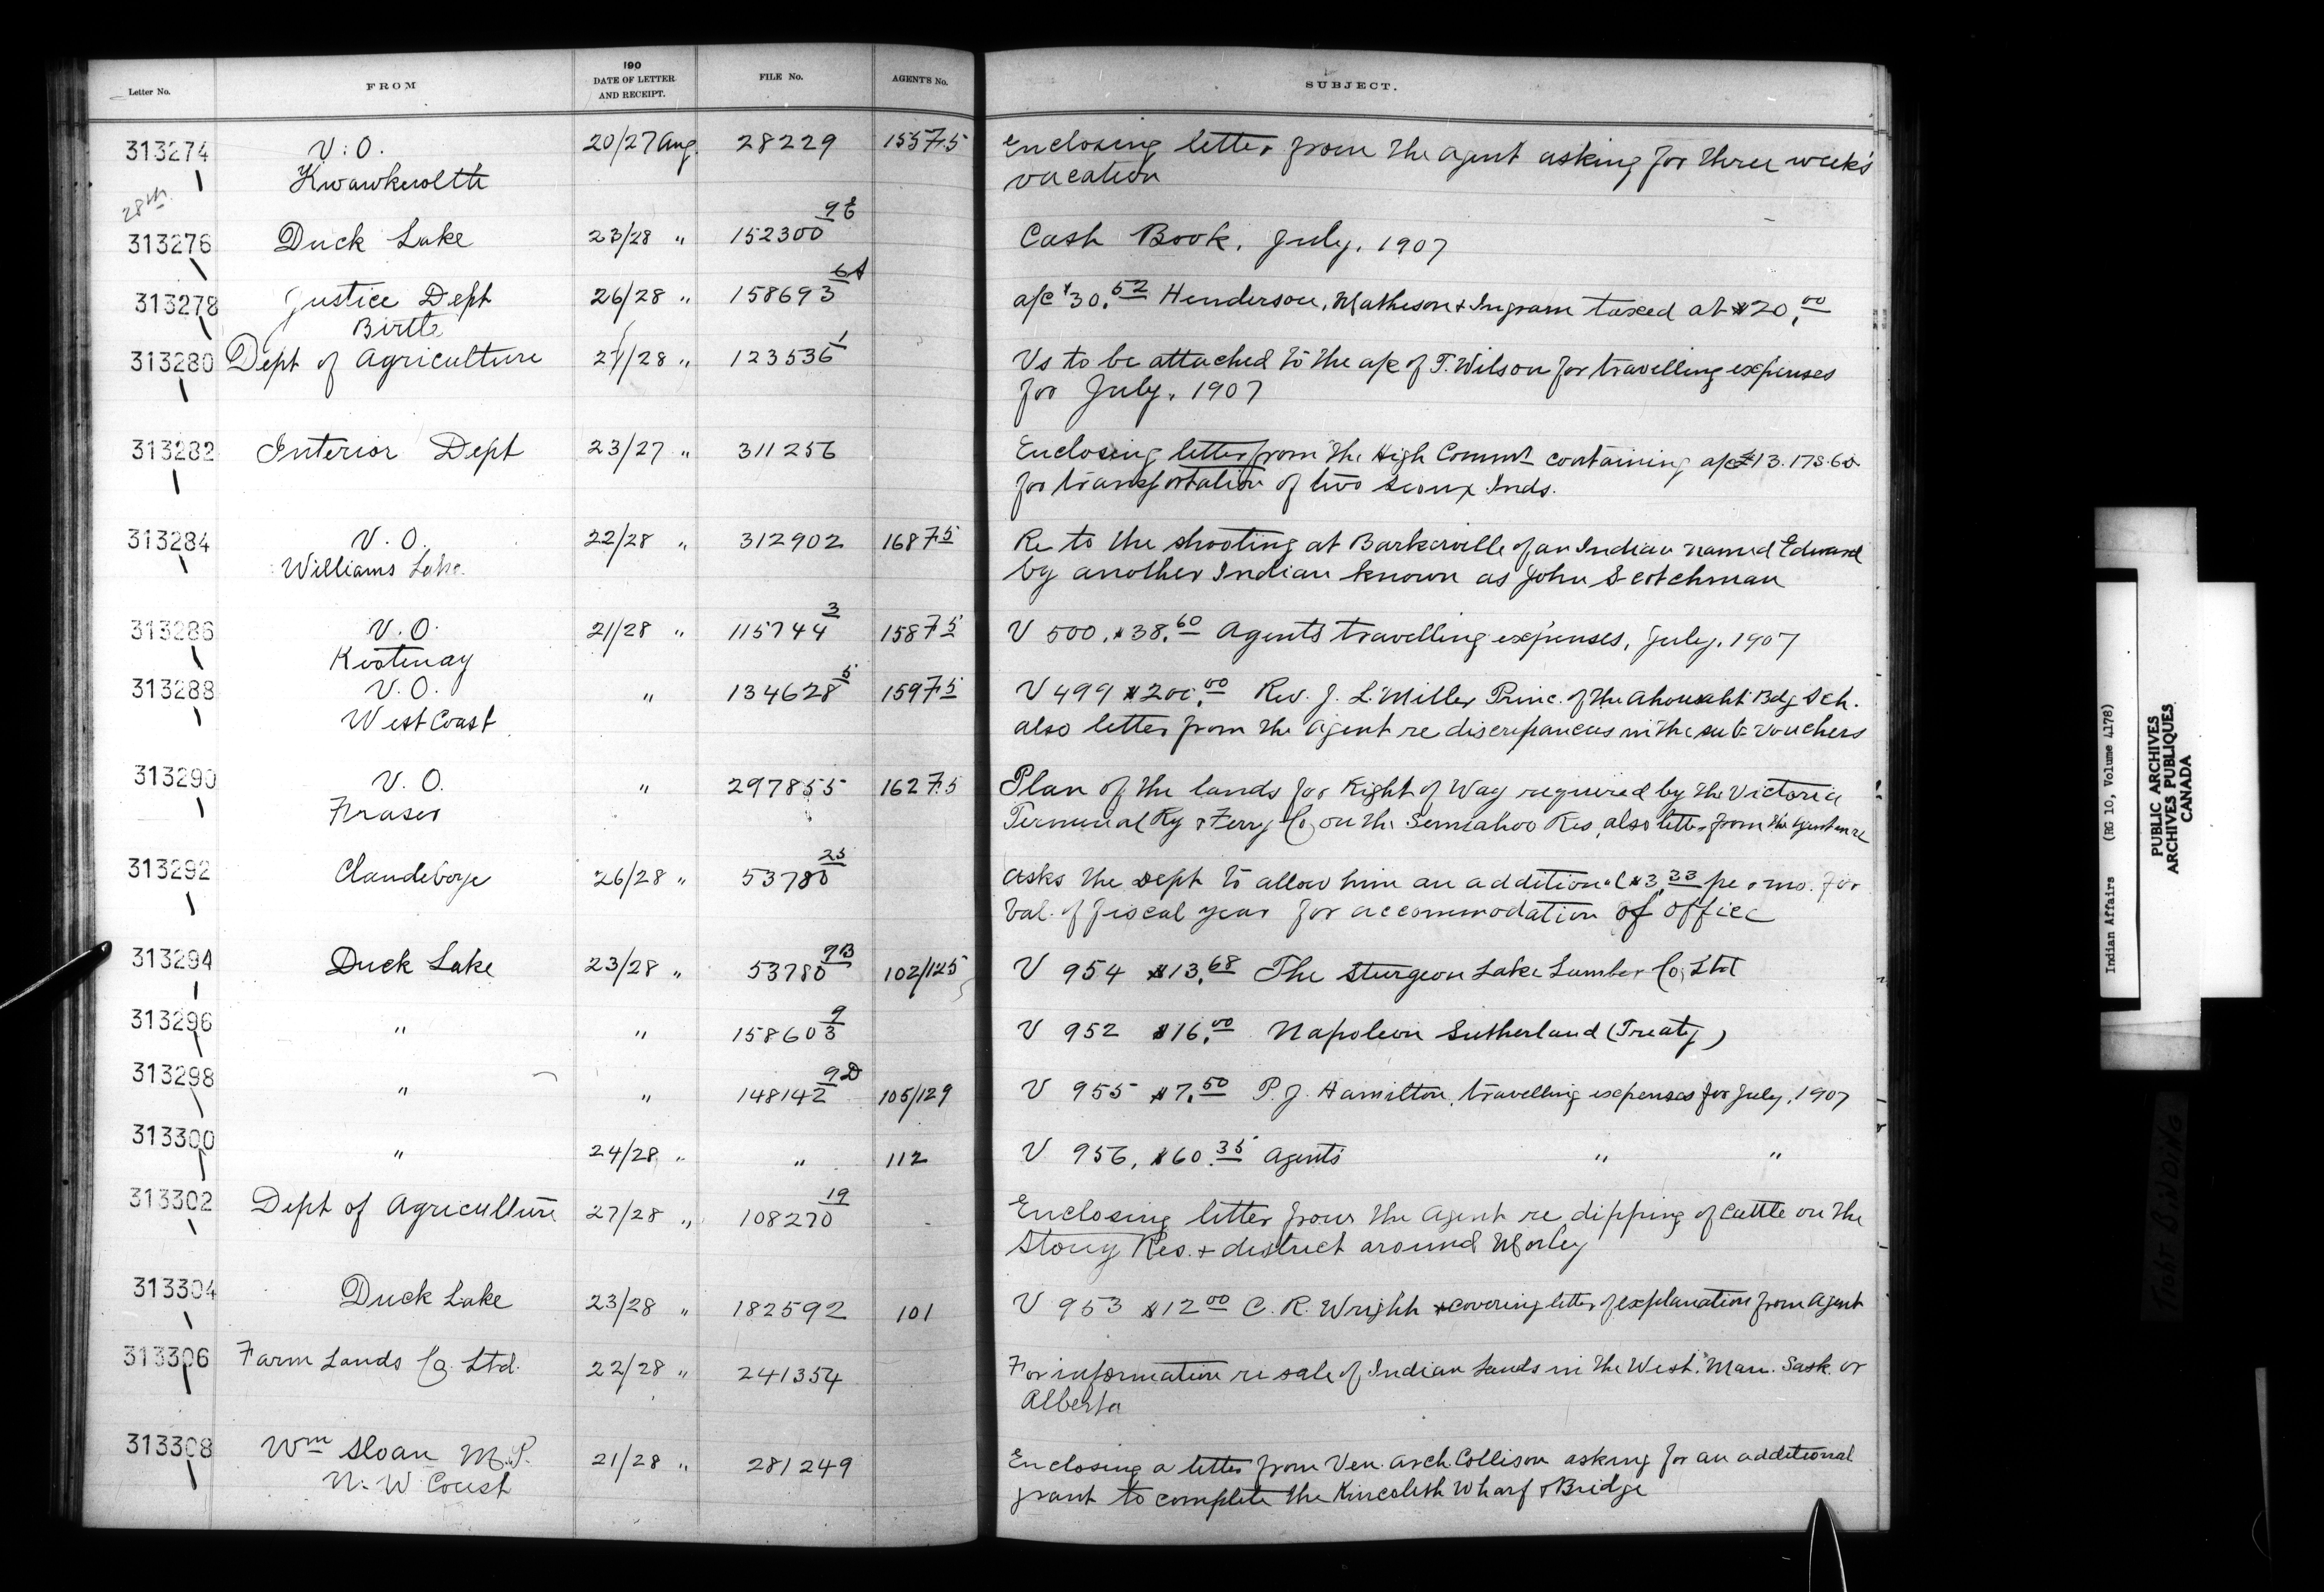 Letter No. FROM 190 DATE OF LETTER AND RECEIPT. FILE No. AGENT'S No. SUBJECT.
313274 V. O. 20/27 Aug. 28229 15575 Enclosing letter from the agent asking for three week's
Kwawkewlth vacation
28th
313276 Duck Lake 23/28 " 152300 Cash Book, July, 1907
313278 Justice Dept 26/28 " 158693 6A a/c $30.52 Henderson, Matheson & Ingram taxed at $20.00
Birtle
313280 Dept of Agriculture 27/28 " 123536 1 Vs to be attached to the a/c of T. Wilson for travelling expenses
for July, 1907
313282 Interior Dept 23/27 " 311256 Enclosing letter from the High Commr containing a/c £13.17s.6d
for transportation of two Sioux Inds.
313284 V. O. 22/28 " 312902 16875 Re to the shooting at Barkerville of an Indian named Edward
Williams Lake. by another Indian known as John Scotchman
313286 V. O. 21/28 " 115744 3 15875 V 500, $38.60 Agents travelling expenses, July, 1907
Kootenay
313288 V. O. " 134628 5 15975 V 499 $200.00 Rev. J. L. Miller Princ. of the Ahousaht Bdg Sch.
West Coast also letter from the Agent re discrepancies in the sub vouchers
313290 V. O. " 297855 16275 Plan of the lands for Right of Way required by the Victoria
Fraser Terminal Ry & Ferry Co, on the Semiahoo Res, also letter from the Agent
313292 Clandeboye 26/28 " 53780 25 Asks the Dept to allow him an additional $3.33 per mo. for
bal. of fiscal year for accommodation of office
313294 Duck Lake 23/28 " 53780 9B 102/125 V 954 $13.68 The Sturgeon Lake Lumber Co, Ltd
313296 " " 158603 9 V 952 $16.00 Napoleon Sutherland (Treaty)
313298 " " 148142 9D 105/129 V 955 $7.50 P. J. Hamilton, travelling expenses for July, 1907
313300 " 24/28 " " 112 V 956, $60.35 Agents " "
313302 Dept of Agriculture 27/28 " 108270 19 Enclosing letter from the Agent re dipping of cattle on the
Stony Res. & district around Morley
313304 Duck Lake 23/28 " 182592 101 V 953 $12.00 C. R. Wright & covering letter of explanation from Agent
313306 Farm Lands Co. Ltd. 22/28 " 241354 For information re sale of Indian Lands in the West. Man. Sask. or
Alberta
313308 Wm Sloan M.P. 21/28 " 281249 Enclosing a letter from Ven. Arch. Collison asking for an additional
N. W Coast grant to complete the Kincolith Wharf & Bridge
Indian Affairs (RG 10, Volume 4178)
PUBLIC ARCHIVES
ARCHIVES PUBLIQUES
CANADA